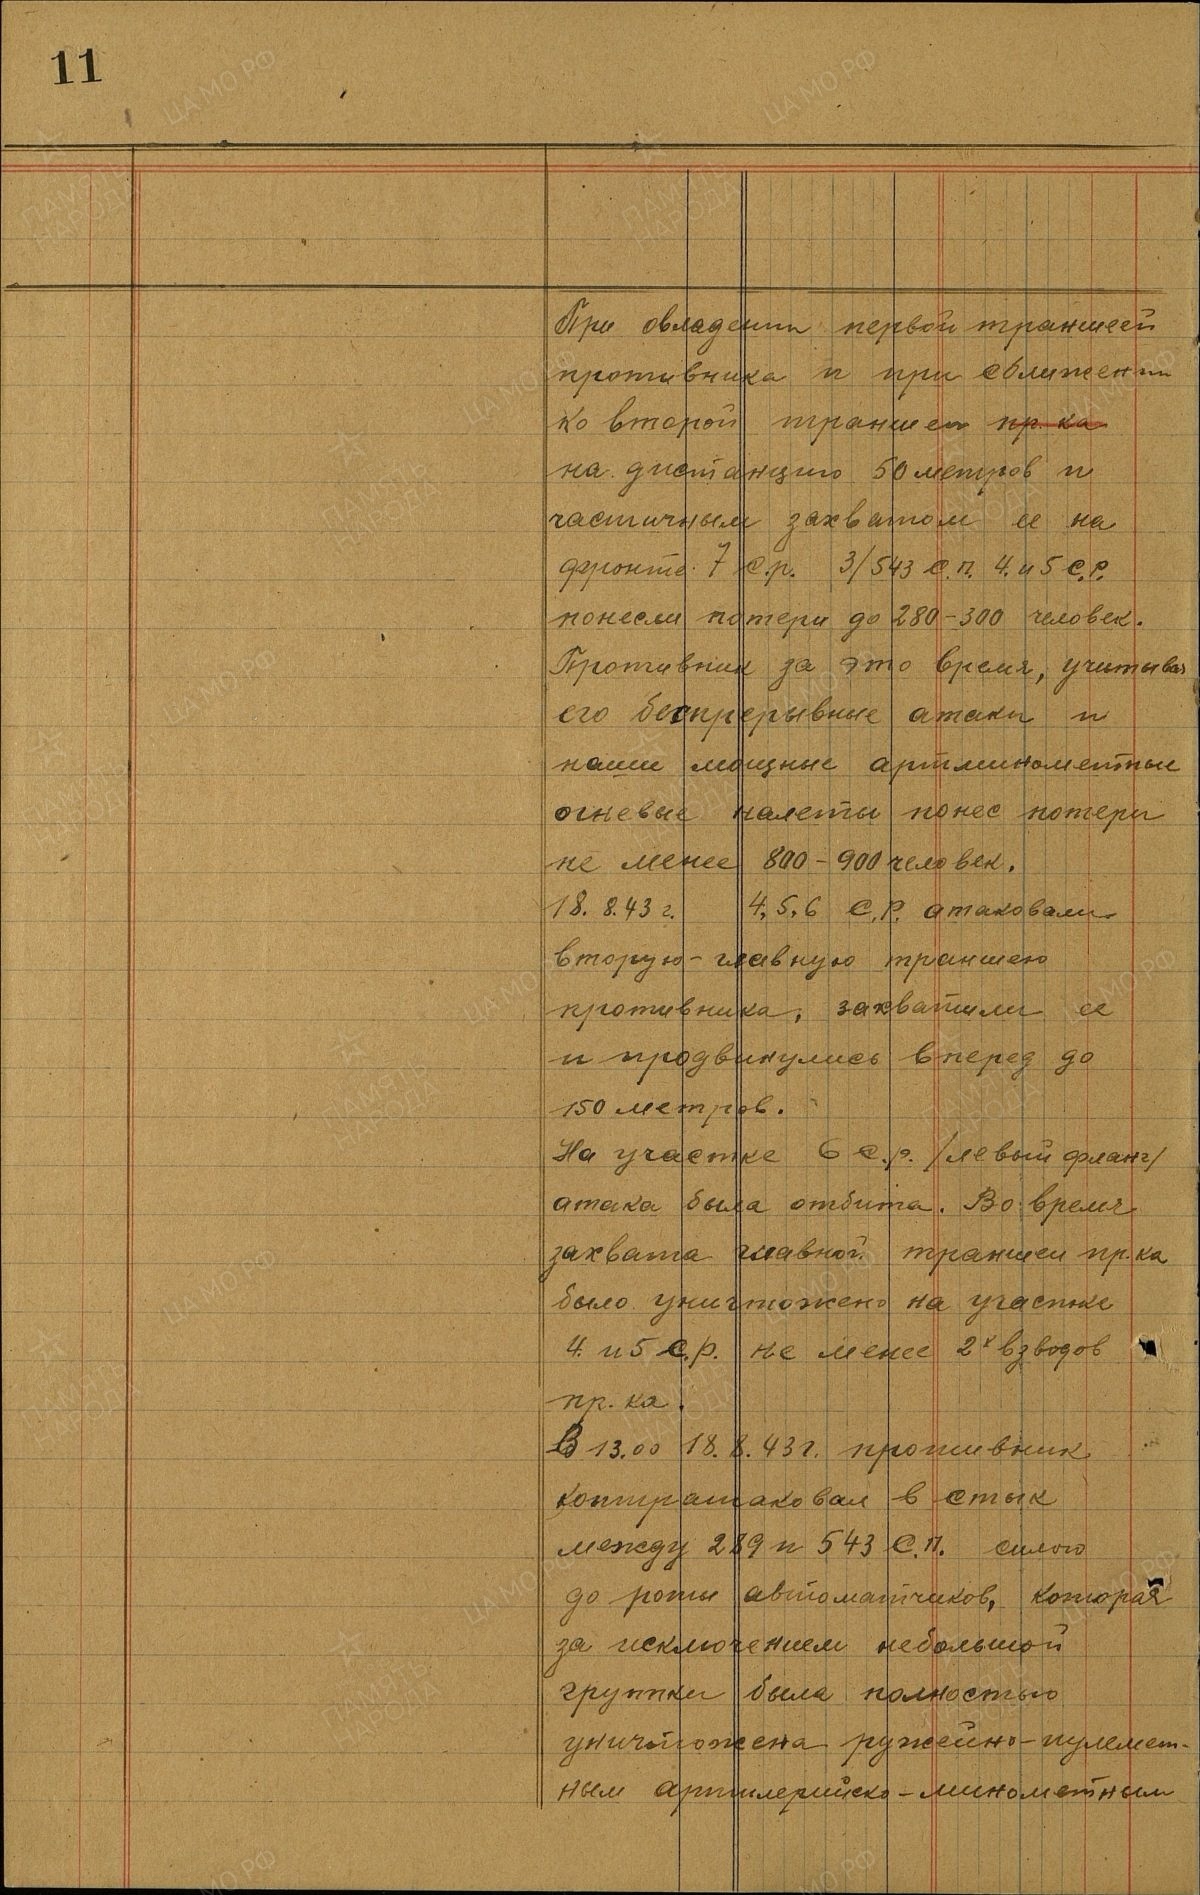 11
При овладении первой траншеей
противника и при сближении
ко второй траншеи пр-ка
на дистанцию 50 метров и
частичным захватом ее на
фронте 7 с.р. 3/543 с.п. 4 и 5 с.р.
понесли потери до 280-300 человек.
Противник за это время, учитывая
его беспрерывные атаки и
наши мощные артминометные
огневые налеты понес потери
не менее 800-900 человек.
18.8.43 г. 4,5,6 С.Р. атаковали
вторую-главную траншею
противника, захватили ее
и продвинулись вперед до
150 метров.
На участке 6 с.р. /левый фланг/
атака была отбита. Во время
захвата главной траншеи пр-ка
было уничтожено на участке
4 и 5 с.р. не менее 2х взводов
пр-ка.
В 13.00 18.8.43 г. противник
контратаковал в стык
между 289 и 543 с.п. силою
до роты автоматчиков, которая
за исключением небольшой
группки была полностью
уничтожена ружейно-пулемет-
ным артилерийско-минометным